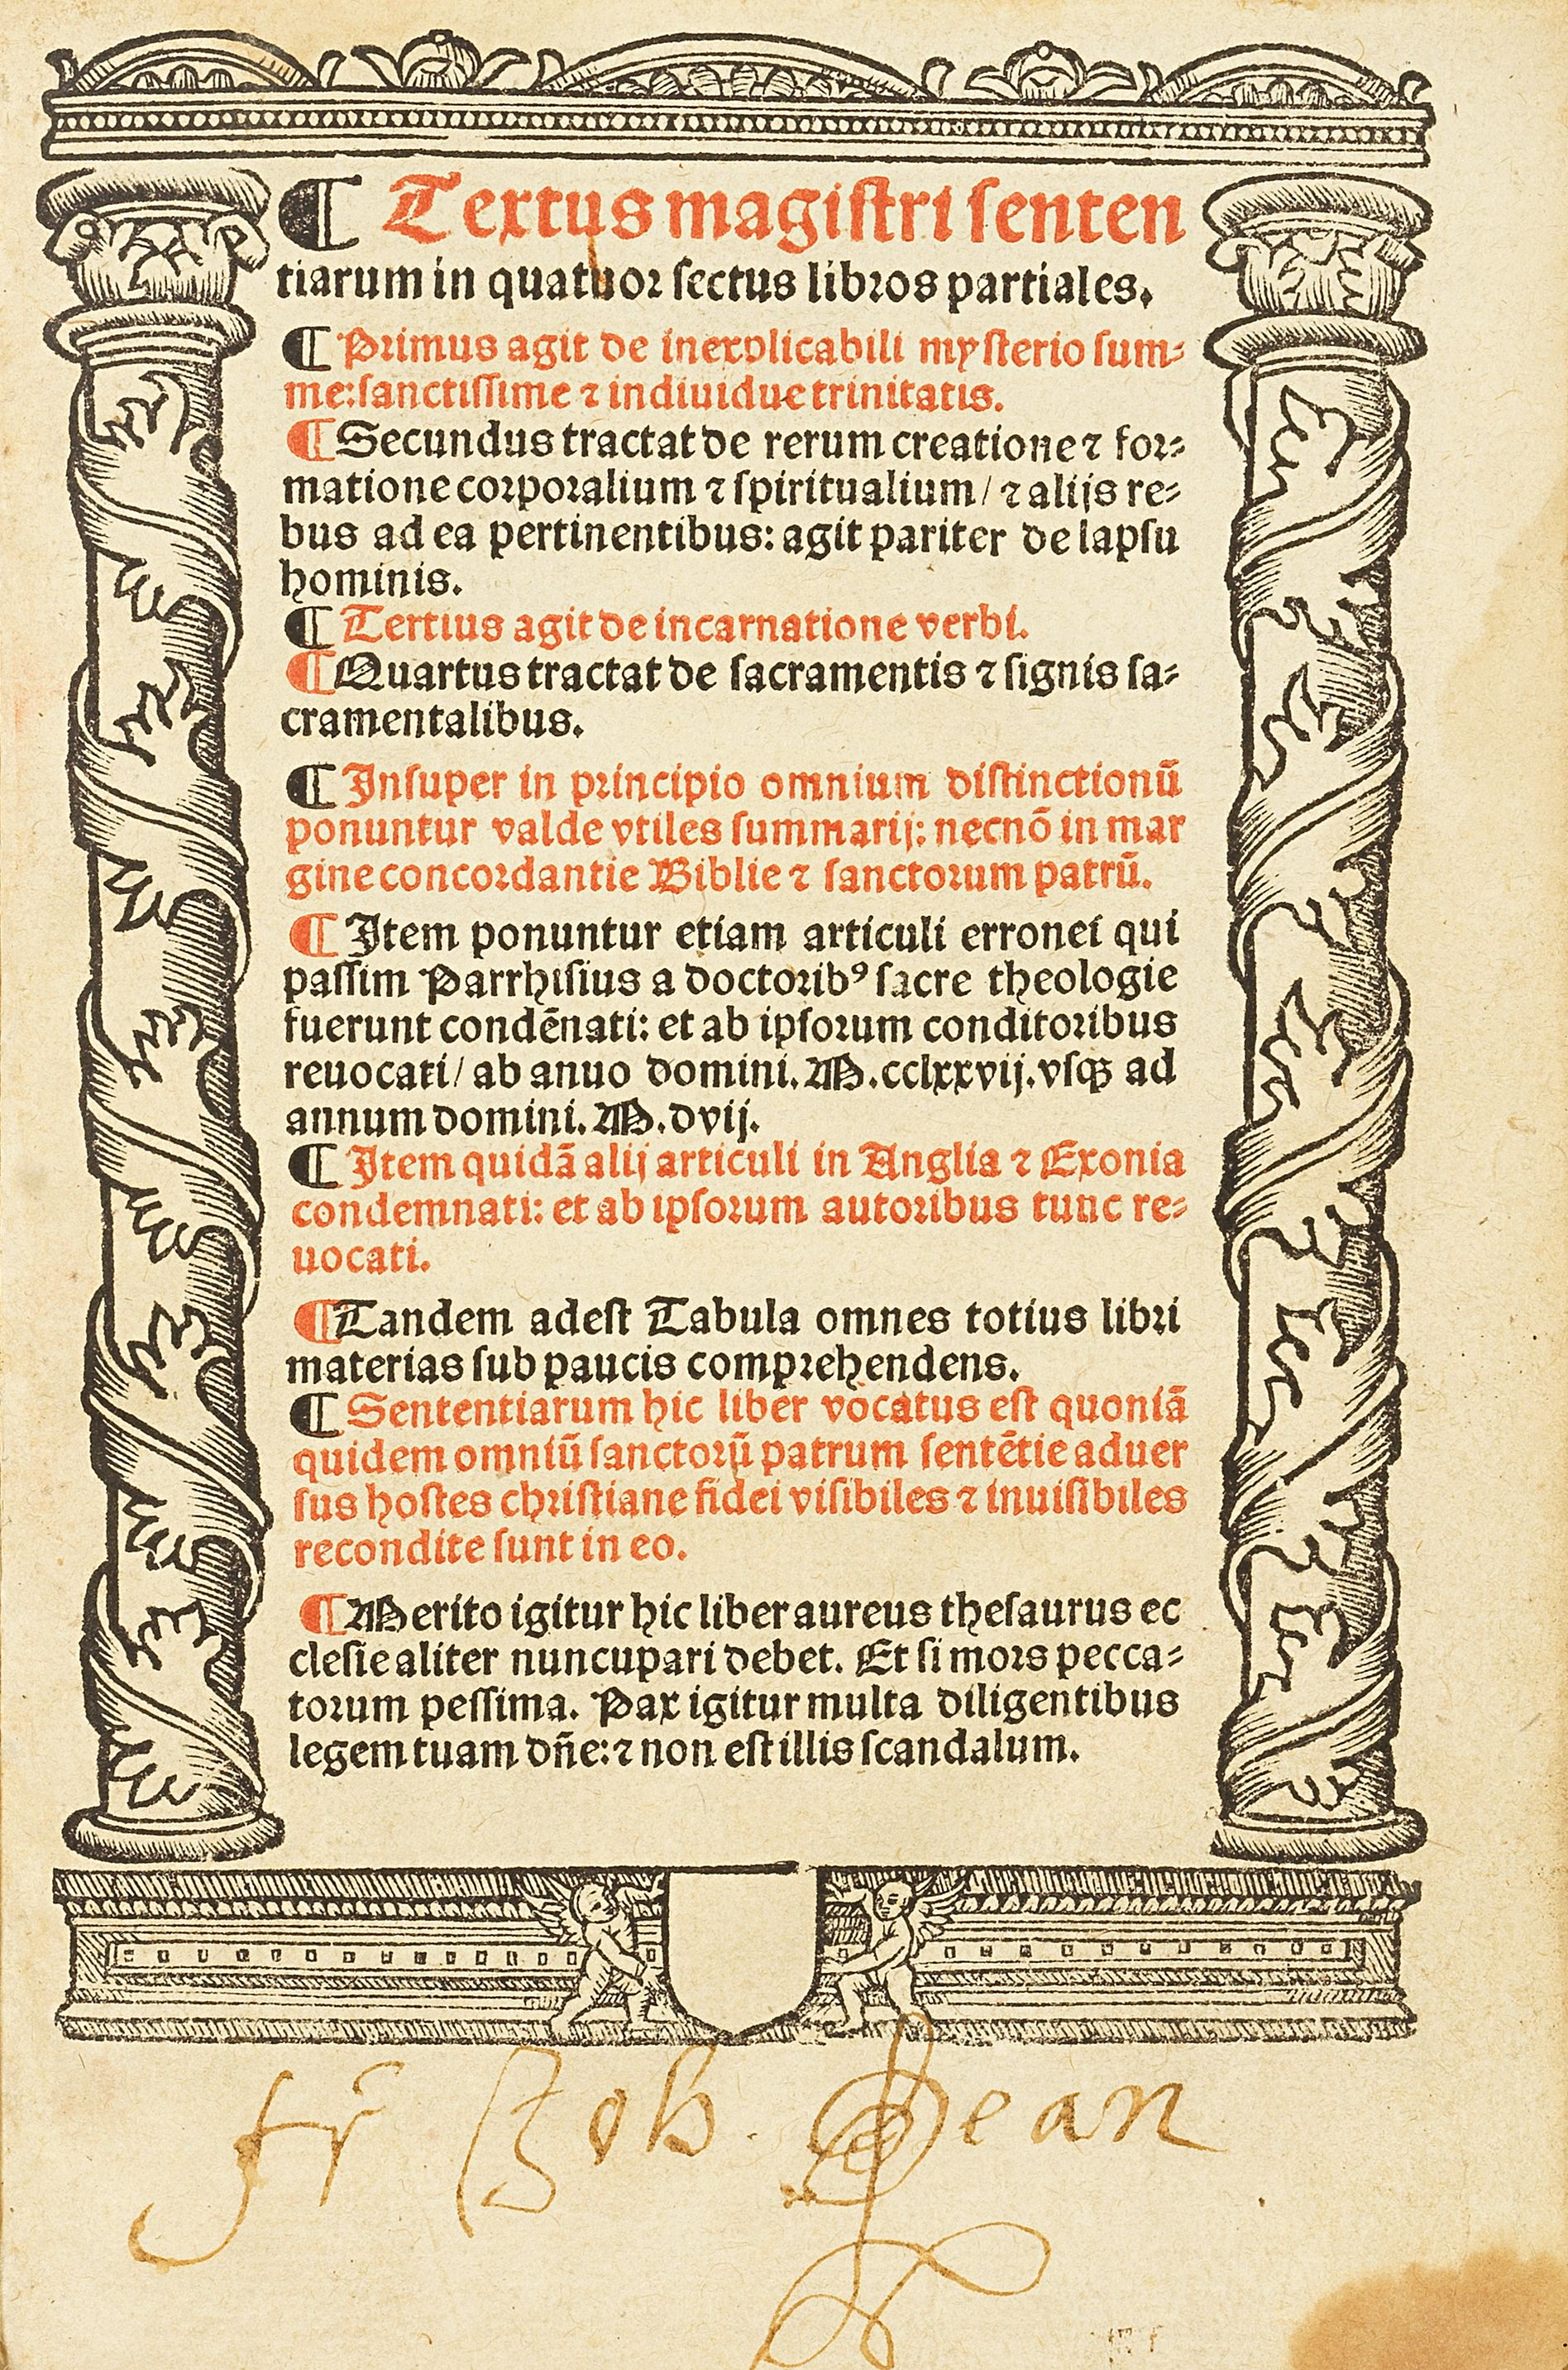 ¶ Textus magistri senten
tiarum in quatuor sectus libros partiales.
¶ Primus agit de inexplicabili mysterio sum⸗
me: sanctissime ⁊ indiuidue trinitatis.
¶ Secundus tractat de rerum creatione ⁊ for⸗
matione corporalium ⁊ spiritualium/ ⁊ alijs re⸗
bus ad ea pertinentibus: agit pariter de lapsu
hominis.
¶ Tertius agit de incarnatione verbi.
¶ Quartus tractat de sacramentis ⁊ signis sa⸗
cramentalibus.
¶ Insuper in principio omnium distinctionū
ponuntur valde vtiles summarij: necnō in mar
gine concordantie Biblie ⁊ sanctorum patrū.
¶ Item ponuntur etiam articuli erronei qui
passim Parrhisius a doctoribꝰ sacre theologie
fuerunt condēnati: et ab ipsorum conditoribus
reuocati/ ab anuo domini. M.cclxxvij. vsqꝫ ad
annum domini. M.dvij.
¶ Item quidā alij articuli in Anglia ⁊ Exonia
condemnati: et ab ipsorum autoribus tunc re⸗
uocati.
¶ Tandem adest Tabula omnes totius libri
materias sub paucis comprehendens.
¶ Sententiarum hic liber vocatus est quoniā
quidem omniū sanctorū patrum sentētie aduer
sus hostes christiane fidei visibiles ⁊ inuisibiles
recondite sunt in eo.
¶ Merito igitur hic liber aureus thesaurus ec
clesie aliter nuncupari debet. Et si mors pecca⸗
torum pessima. Pax igitur multa diligentibus
legem tuam dñe: ⁊ non est illis scandalum.
fr Joh. Dean